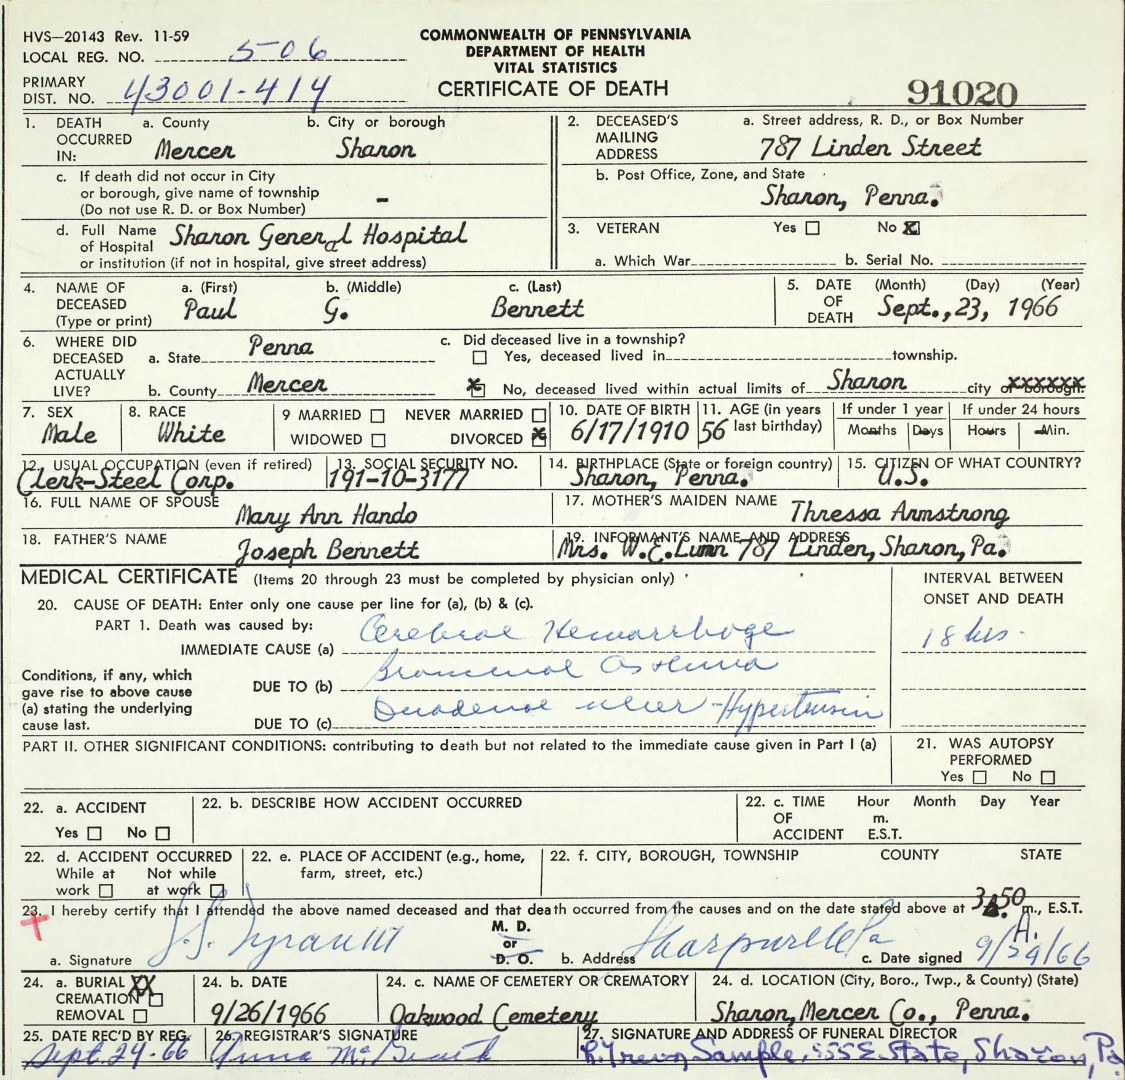 HVS—20143 Rev. 11-59
LOCAL REG. NO. 506
PRIMARY
DIST. NO. 43001-414
COMMONWEALTH OF PENNSYLVANIA
DEPARTMENT OF HEALTH
VITAL STATISTICS
CERTIFICATE OF DEATH
91020
1. DEATH OCCURRED IN: a. County Mercer b. City or borough Sharon
c. If death did not occur in City
or borough, give name of township
(Do not use R. D. or Box Number) -
d. Full Name
of Hospital Sharon General Hospital
or institution (if not in hospital, give street address)
2. DECEASED'S MAILING ADDRESS a. Street address, R. D., or Box Number
787 Linden Street
b. Post Office, Zone, and State
Sharon, Penna.
3. VETERAN Yes No X
a. Which War b. Serial No.
4. NAME OF DECEASED (Type or print) a. (First) Paul b. (Middle) G. c. (Last) Bennett
5. DATE OF DEATH (Month) (Day) (Year)
Sept., 23, 1966
6. WHERE DID DECEASED ACTUALLY LIVE? a. State Penna
b. County Mercer
c. Did deceased live in a township?
Yes, deceased lived in township.
X No, deceased lived within actual limits of Sharon city or borough.
7. SEX Male
8. RACE White
9 MARRIED NEVER MARRIED
WIDOWED DIVORCED X
10. DATE OF BIRTH 6/17/1910
11. AGE (in years last birthday) 56
If under 1 year Months Days
If under 24 hours Hours Min.
12. USUAL OCCUPATION (even if retired) Clerk-Steel Corp.
13. SOCIAL SECURITY NO. 191-10-3177
14. BIRTHPLACE (State or foreign country) Sharon, Penna.
15. CITIZEN OF WHAT COUNTRY? U.S.
16. FULL NAME OF SPOUSE Mary Ann Hando
17. MOTHER'S MAIDEN NAME Thressa Armstrong
18. FATHER'S NAME Joseph Bennett
19. INFORMANT'S NAME AND ADDRESS Mrs. W.E. Lunn 787 Linden, Sharon, Pa.
MEDICAL CERTIFICATE (Items 20 through 23 must be completed by physician only)
INTERVAL BETWEEN
ONSET AND DEATH
20. CAUSE OF DEATH: Enter only one cause per line for (a), (b) & (c).
PART 1. Death was caused by:
IMMEDIATE CAUSE (a) Cerebral Hemorrhage 18 hrs.
Conditions, if any, which
gave rise to above cause
(a) stating the underlying
cause last.
DUE TO (b) Bronchial Asthma
DUE TO (c) Duodenal ulcer - Hypertension
PART II. OTHER SIGNIFICANT CONDITIONS: contributing to death but not related to the immediate cause given in Part I (a)
21. WAS AUTOPSY
PERFORMED
Yes No
22. a. ACCIDENT
Yes No
22. b. DESCRIBE HOW ACCIDENT OCCURRED
22. c. TIME OF ACCIDENT Hour Month Day Year
m.
E.S.T.
22. d. ACCIDENT OCCURRED
While at work Not while at work
22. e. PLACE OF ACCIDENT (e.g., home,
farm, street, etc.)
22. f. CITY, BOROUGH, TOWNSHIP COUNTY STATE
23. I hereby certify that I attended the above named deceased and that death occurred from the causes and on the date stated above at 3:50 A. m., E.S.T.
a. Signature
M. D.
or
D. O.
b. Address Pa
c. Date signed 9/24/66
24. a. BURIAL XX
CREMATION
REMOVAL
24. b. DATE
9/26/1966
24. c. NAME OF CEMETERY OR CREMATORY
Oakwood Cemetery
24. d. LOCATION (City, Boro., Twp., & County) (State)
Sharon, Mercer Co., Penna.
25. DATE REC'D BY REG. Sept. 24-66
26. REGISTRAR'S SIGNATURE
27. SIGNATURE AND ADDRESS OF FUNERAL DIRECTOR
Sample, E. State, Sharon, Pa.